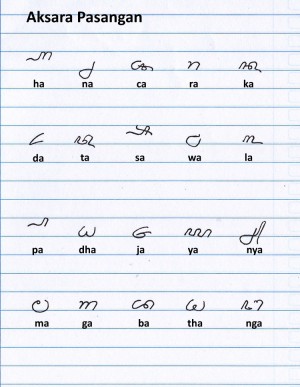 Aksara Pasangan
꧀ꦲ ꧀ꦤ ꧀ꦕ ꧀ꦫ ꧀ꦏ
ha na ca ra ka
꧀ꦢ ꧀ꦠ ꧀ꦱ ꧀ꦮ ꧀ꦭ
da ta sa wa la
꧀ꦥ ꧀ꦝ ꧀ꦗ ꧀ꦪ ꧀ꦚ
pa dha ja ya nya
꧀ꦩ ꧀ꦒ ꧀ꦧ ꧀ꦛ ꧀ꦔ
ma ga ba tha nga